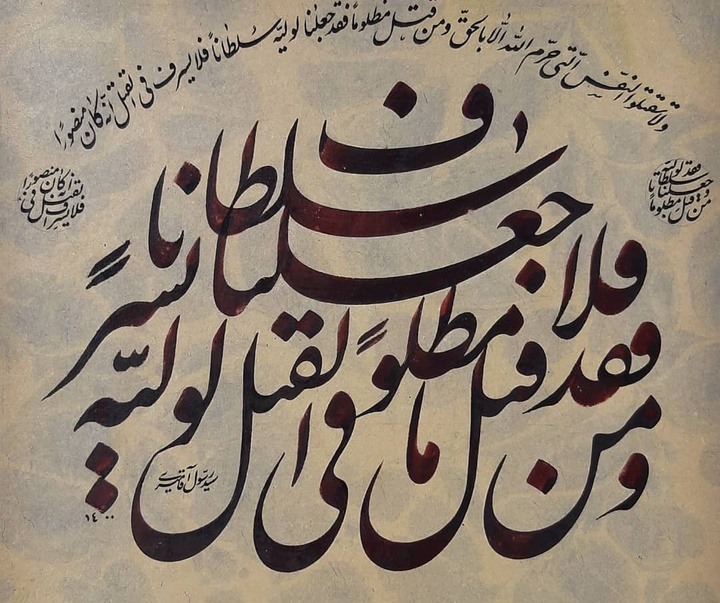 ولا تقتلوا النفس التی حرّم الله الّا بالحقّ ومن قتل مظلوماً فقد جعلنا لولیّه سلطاناً فلا یسرف فی القتل انّه کان منصوراً
ومن قتل مظلوماً
فقد جعلنا لولیّه سلطانا
فلا یسرف فی القتل
انّه کان منصوراً
ومن قتل مظلوماً فقد جعلنا لولیّه سلطانا فلا یسرف فی القتل
سید رسول
۱۴۰۰